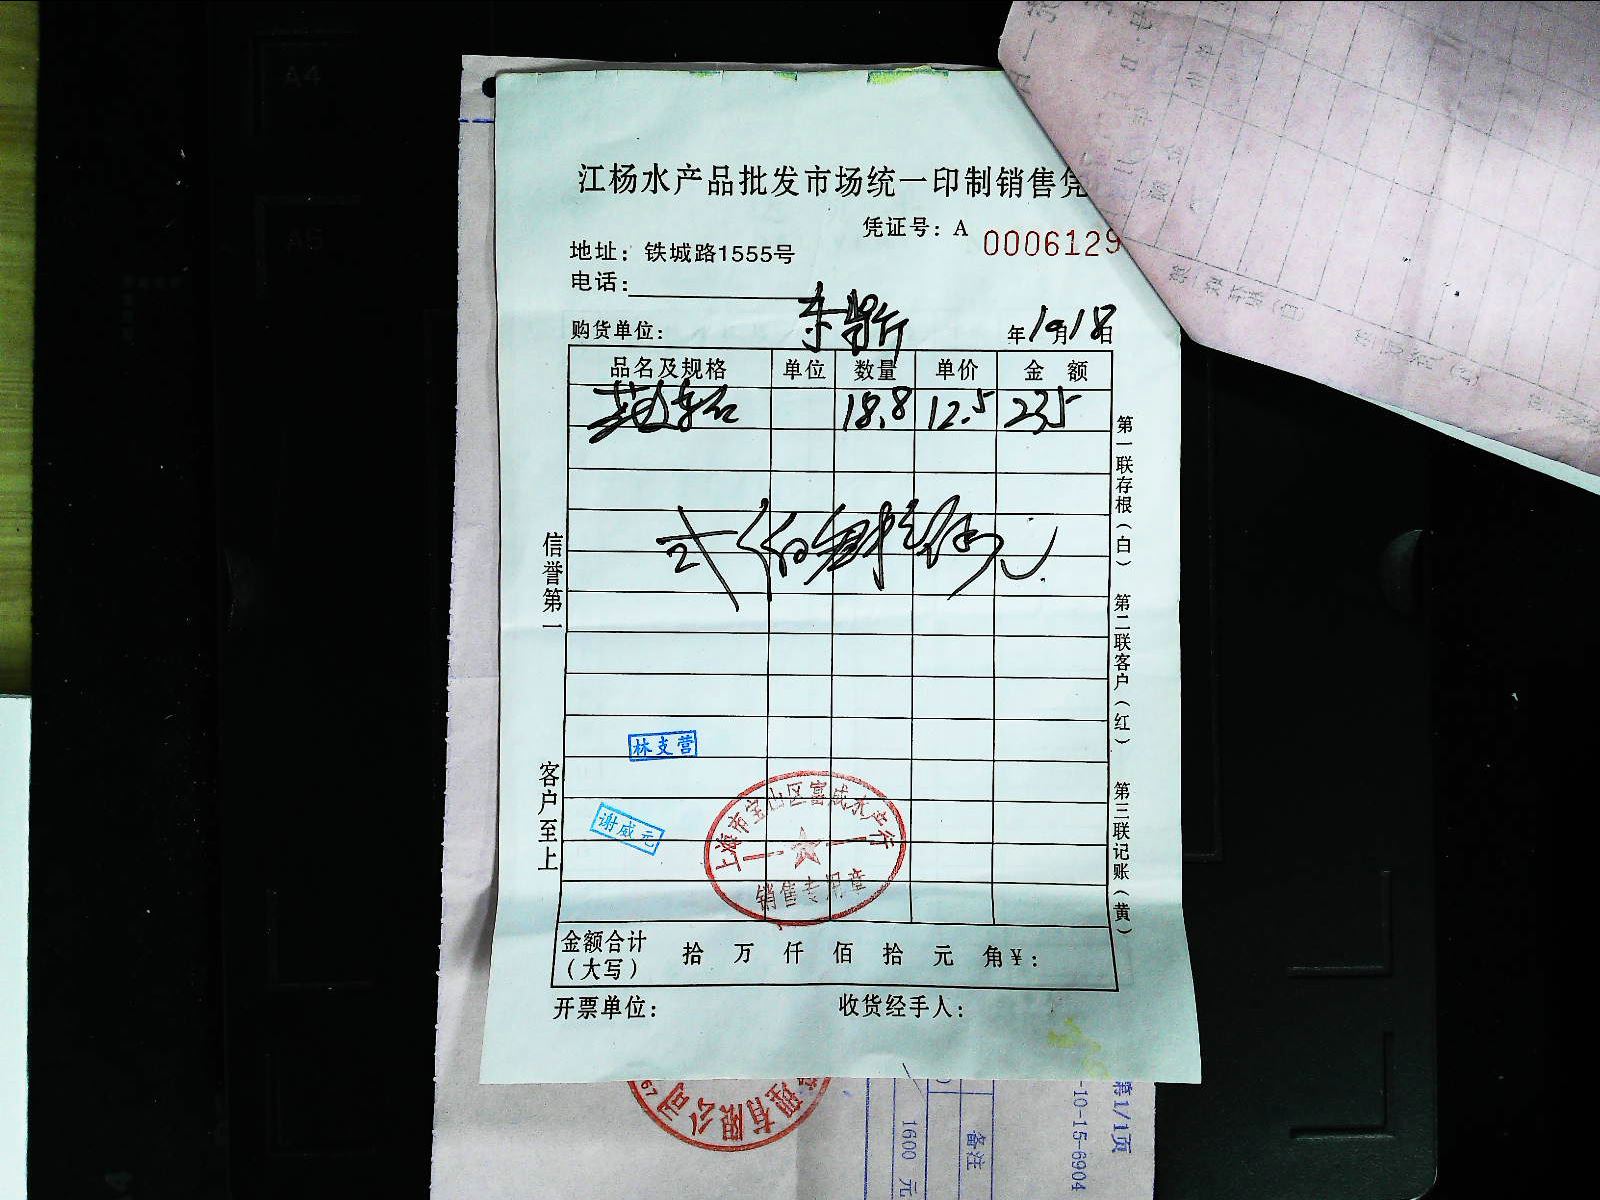 江杨水产品批发市场统一印制销售凭
凭证号：A 0006129
地址：铁城路1555号
电话：
购货单位：
年10月18日
品名及规格 单位 数量 单价 金额
18.8 12.5 235
贰佰叁拾伍元
信誉第一
客户至上
第一联存根（白）
第二联客户（红）
第三联记账（黄）
林支营
谢威元
上海市宝山区富成水产行
销售专用章
金额合计（大写） 拾 万 仟 佰 拾 元 角 ¥：
开票单位： 收货经手人：
理有限公司
67
1600 元
备注
-10-15-6904
第1/1页
A4
A5